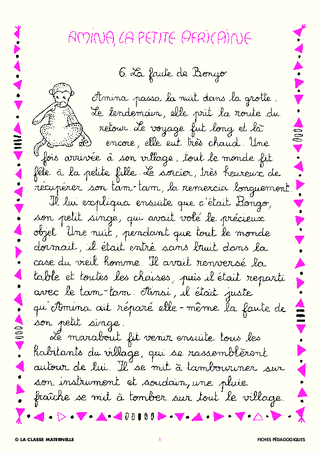 AMINA, LA PETITE AFRICAINE
6. La faute de Bongo
Amina passa la nuit dans la grotte.
Le lendemain, elle prit la route du
retour. Le voyage fut long et là
encore, elle eut très chaud. Une
fois arrivée à son village, tout le monde fit
fête à la petite fille. Le sorcier, très heureux de
récupérer son tam-tam, la remercia longuement.
Il lui expliqua ensuite que c'était Bongo,
son petit singe, qui avait volé le précieux
objet. Une nuit, pendant que tout le monde
dormait, il était entré sans bruit dans la
case du vieil homme. Il avait renversé la
table et toutes les chaises, puis il était reparti
avec le tam-tam. Ainsi, il était juste
qu'Amina ait réparé elle-même la faute de
son petit singe.
Le marabout fit venir ensuite tous les
habitants du village, qui se rassemblèrent
autour de lui. Il se mit à tambouriner sur
son instrument et soudain, une pluie
fraîche se mit à tomber sur tout le village.
© LA CLASSE MATERNELLE
1
FICHES PÉDAGOGIQUES